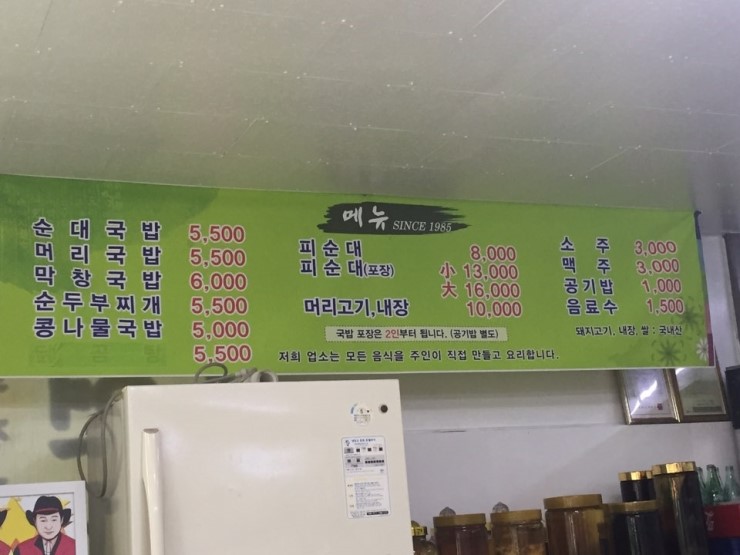 메뉴 SINCE 1985
순대국밥 5,500
머리국밥 5,500
막창국밥 6,000
순두부찌개 5,500
콩나물국밥 5,000
5,500
피순대 8,000
피순대(포장) 小 13,000
大 16,000
머리고기,내장 10,000
소주 3,000
맥주 3,000
공기밥 1,000
음료수 1,500
국밥 포장은 2인부터 됩니다. (공기밥 별도)
돼지고기, 내장, 쌀 : 국내산
저희 업소는 모든 음식을 주인이 직접 만들고 요리합니다.